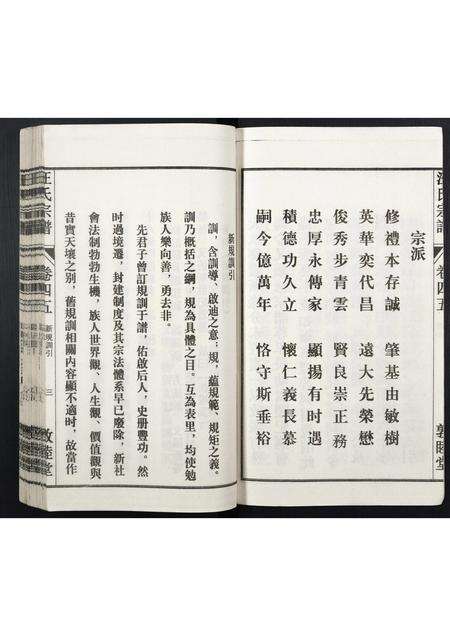 汪氏宗譜
卷四五
敦睦堂
宗派
修禮本存誠 肇基由敏樹
英華奕代昌 遠大先榮懋
俊秀步青雲 賢良崇正務
忠厚永傳家 顯揚有時遇
積德功久立 懷仁義長慕
嗣今億萬年 恪守斯垂裕
新規訓引
訓，含訓導、啟迪之意；規，蘊規範、規矩之義。
訓乃概括之綱，規為具體之目。互為表裡，均使勉
族人樂向善，勇去非。
先君子曾訂規訓于譜，佑啟后人，史册豐功。然
時過境遷，封建制度及其宗法體系早已廢除，新社
會法制勃勃生機，族人世界觀、人生觀、價值觀與
昔實天壤之别，舊規訓相關内容顯不適時，故當作
汪氏宗譜
卷四五
新規訓引
三
敦睦堂